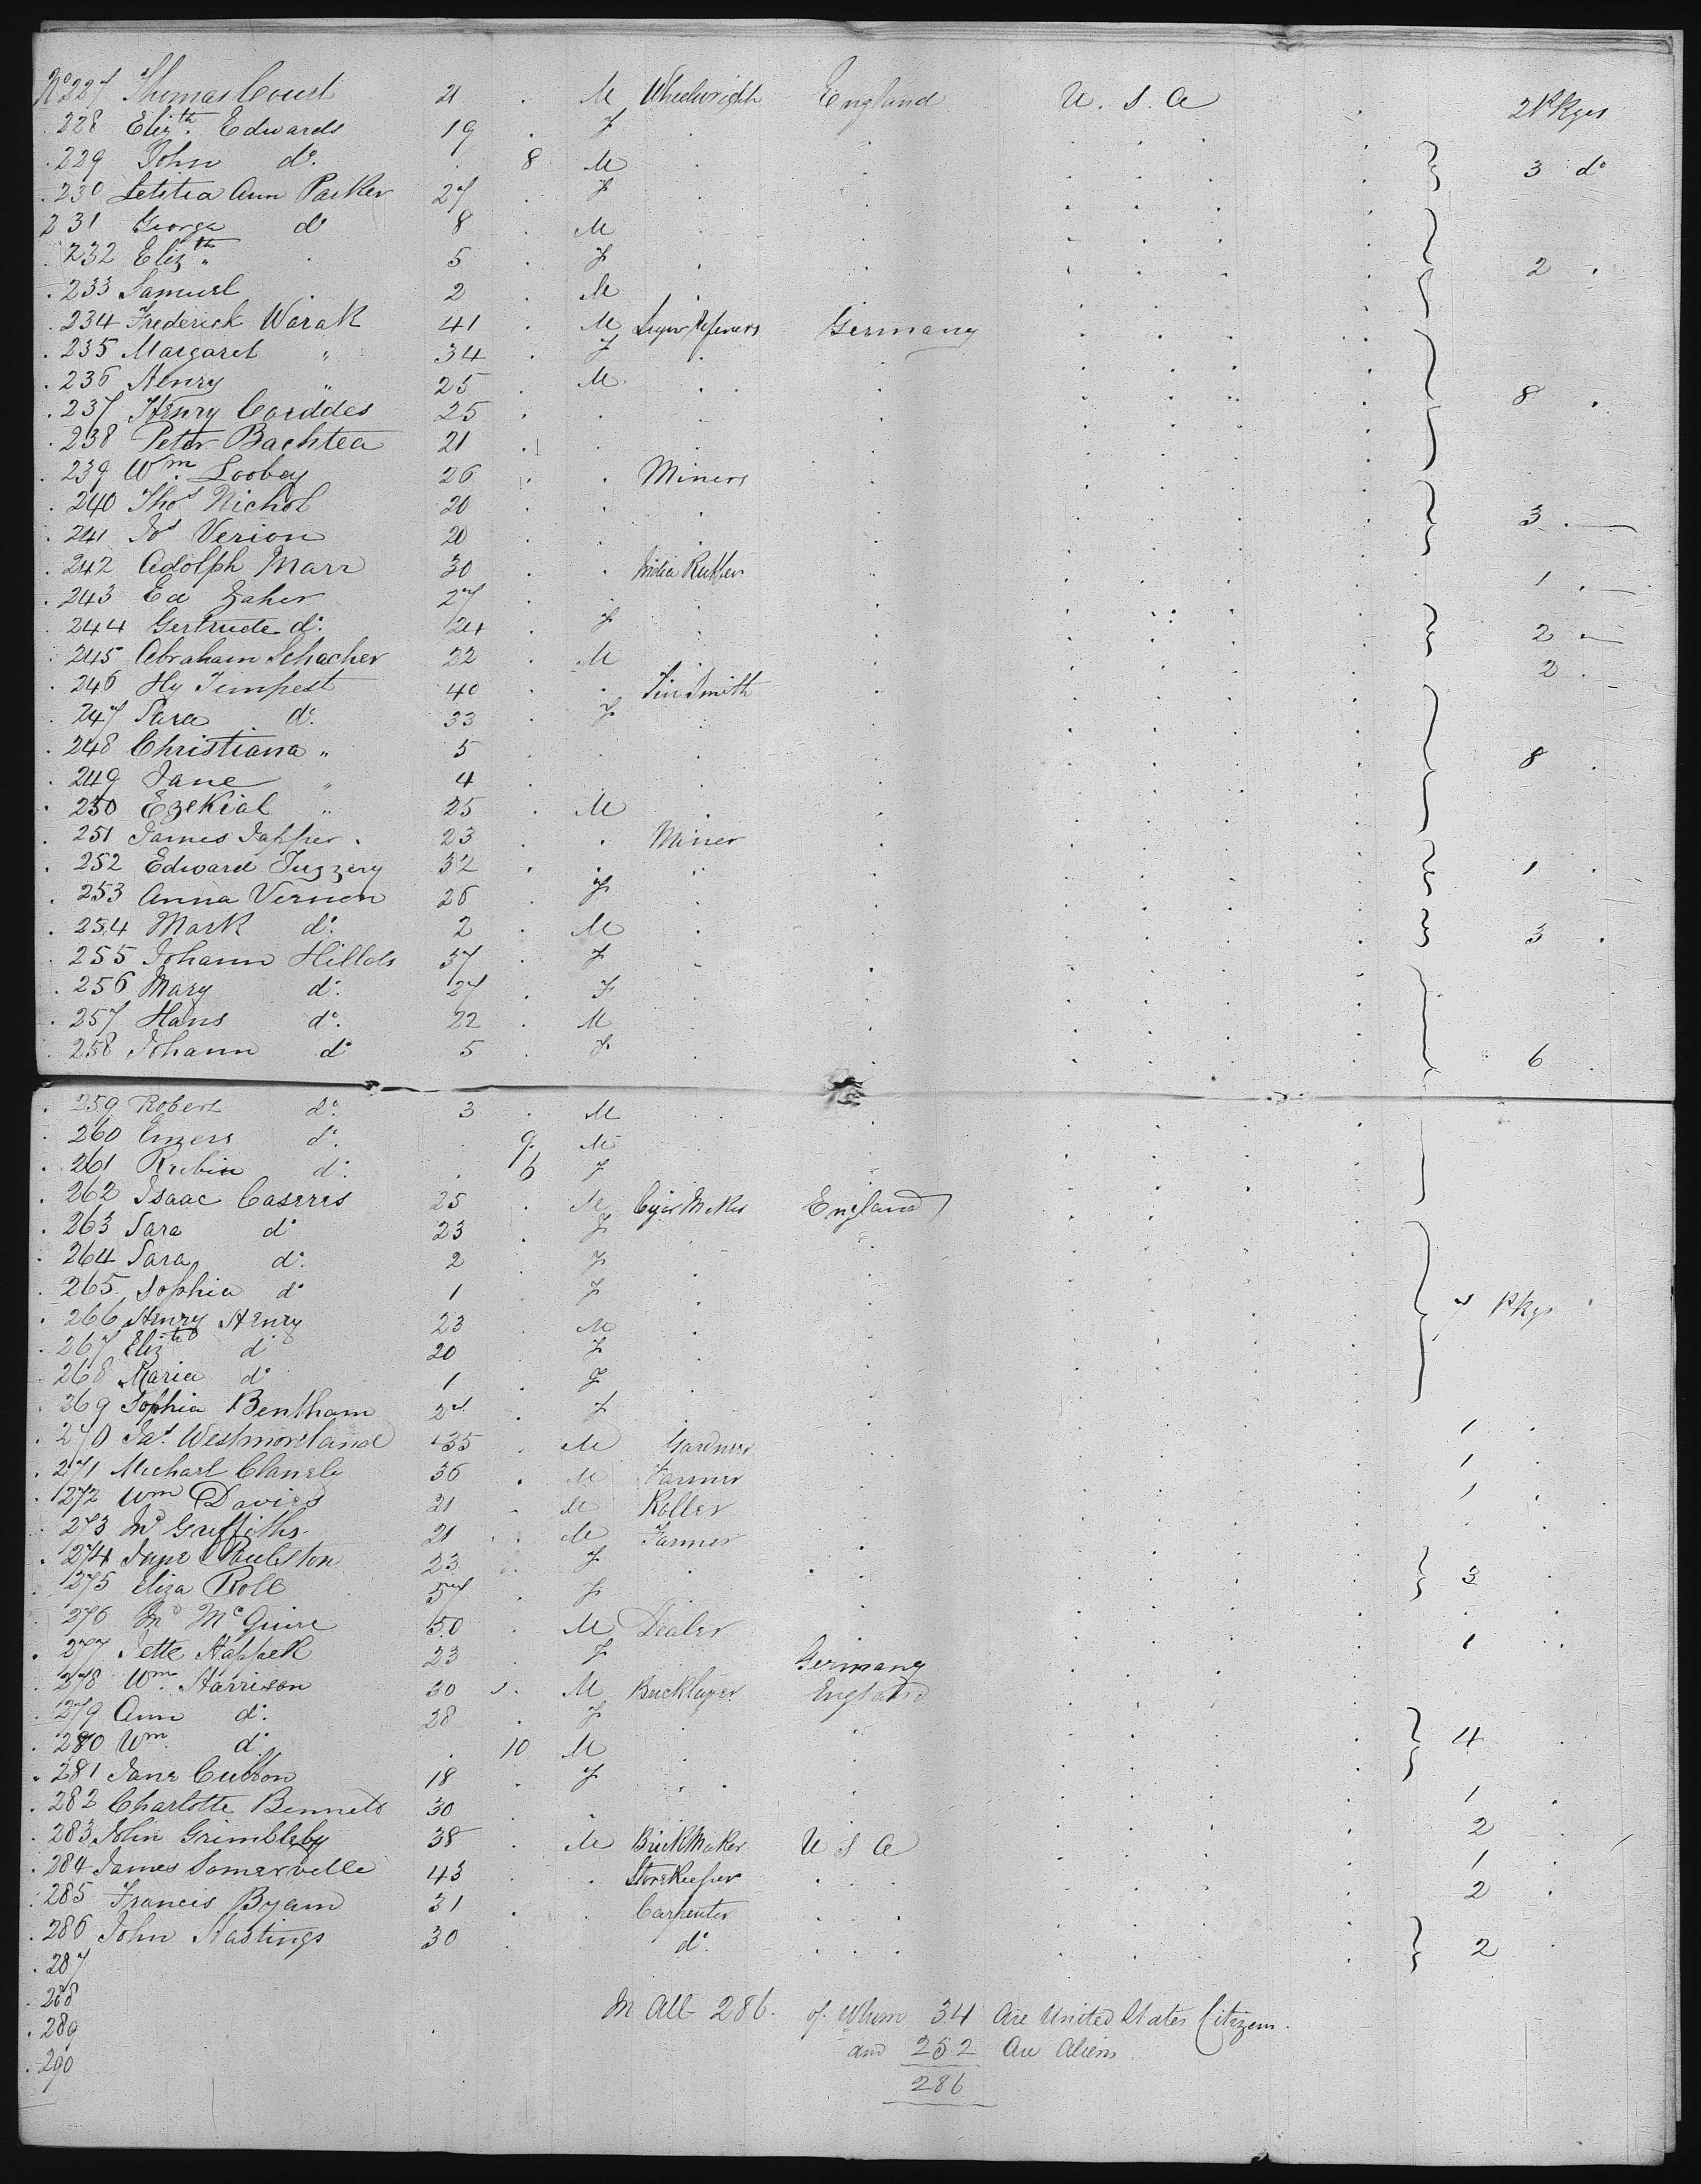 No 227 Thomas Court 21 . M Wheelwright England U. S. A . 2 Pkges
228 Elizth Edwards 19 . F
229 John do . 8 M } 3 do
230 Letitia Ann Parker 27 . F
231 George do 8 . M
232 Elizth " 5 . F } 2 .
233 Samuel . 2 . M
234 Frederick Warak 41 . M Germany
235 Margaret " 34 . F
236 Henry " 25 . M
237 Henry Corddes 25 . . } 8 .
238 Peter Bachtea 21 . .
239 Wm. Loobey 26 . . Miners
240 Thos Nichol 20 . . } 3 . —
241 Jos Verion 20 . .
242 Adolph Marr 30 . . India Rubber 1 . —
243 Ed Zaher 27 . .
244 Gertrude do 24 . F } 2 —
245 Abraham Schacher 22 . M 2 .
246 Hy Tempest 40 . . Tin Smith
247 Sara do 33 . F
248 Christiana " 5 . . } 8 .
249 Jane " 4 . .
250 Ezekial " 25 . M
251 James Japper . 23 . . Miner
252 Edward 32 . . " } 1 .
253 Anna Vernon 26 . F
254 Mark do 2 . M } 3 .
255 Johann Hillds 37 . F
256 Mary do 27 . F
257 Hans do 22 . M
258 Johann do 5 . F } 6 .
259 Robert do 3 . M
260 do . 9. M
261 do . 6 F
262 Isaac Caseres 25 . M England
263 Sara do 23 . F
264 Sara do 2 . F
265 Sophia do 1 . F
266 Henry Henry 23 . M } 7 Pkgs .
267 Elizth do 20 . F
268 Maria do 1 . F
269 Sophia Bentham . F 1 .
270 Jas. Westmoreland 35 . M Gardner 1 .
271 Michael 36 . M Farmer 1 .
272 Wm Davies 21 . M Roller
273 Jno Griffiths 21 . M Farmer
274 Jane 23 . F } 3 .
275 Eliza Roll 57 . F
276 Jno McGuire 50 . M Dealer 1 .
277 Jette Happek 23 . F Germany
278 Wm. Harrison 30 . M Bricklayer England
279 Ann do 28 . F } 4 .
280 Wm do . 10 M
281 Jane Cutton 18 . F 1 .
282 Charlotte Bennett 30 . . 2
283 John Grimbleby 38 . M Brick Maker U S A 1 .
284 James Somerville 43 . . Storekeeper . . . 2 .
285 Francis Byam 31 . . Carpenter . . .
286 John Hastings 30 . do . . . } 2 .
287
288 In All 286. of Whom 34 Are United States Citizens.
289 and 252 Are Aliens.
290 286